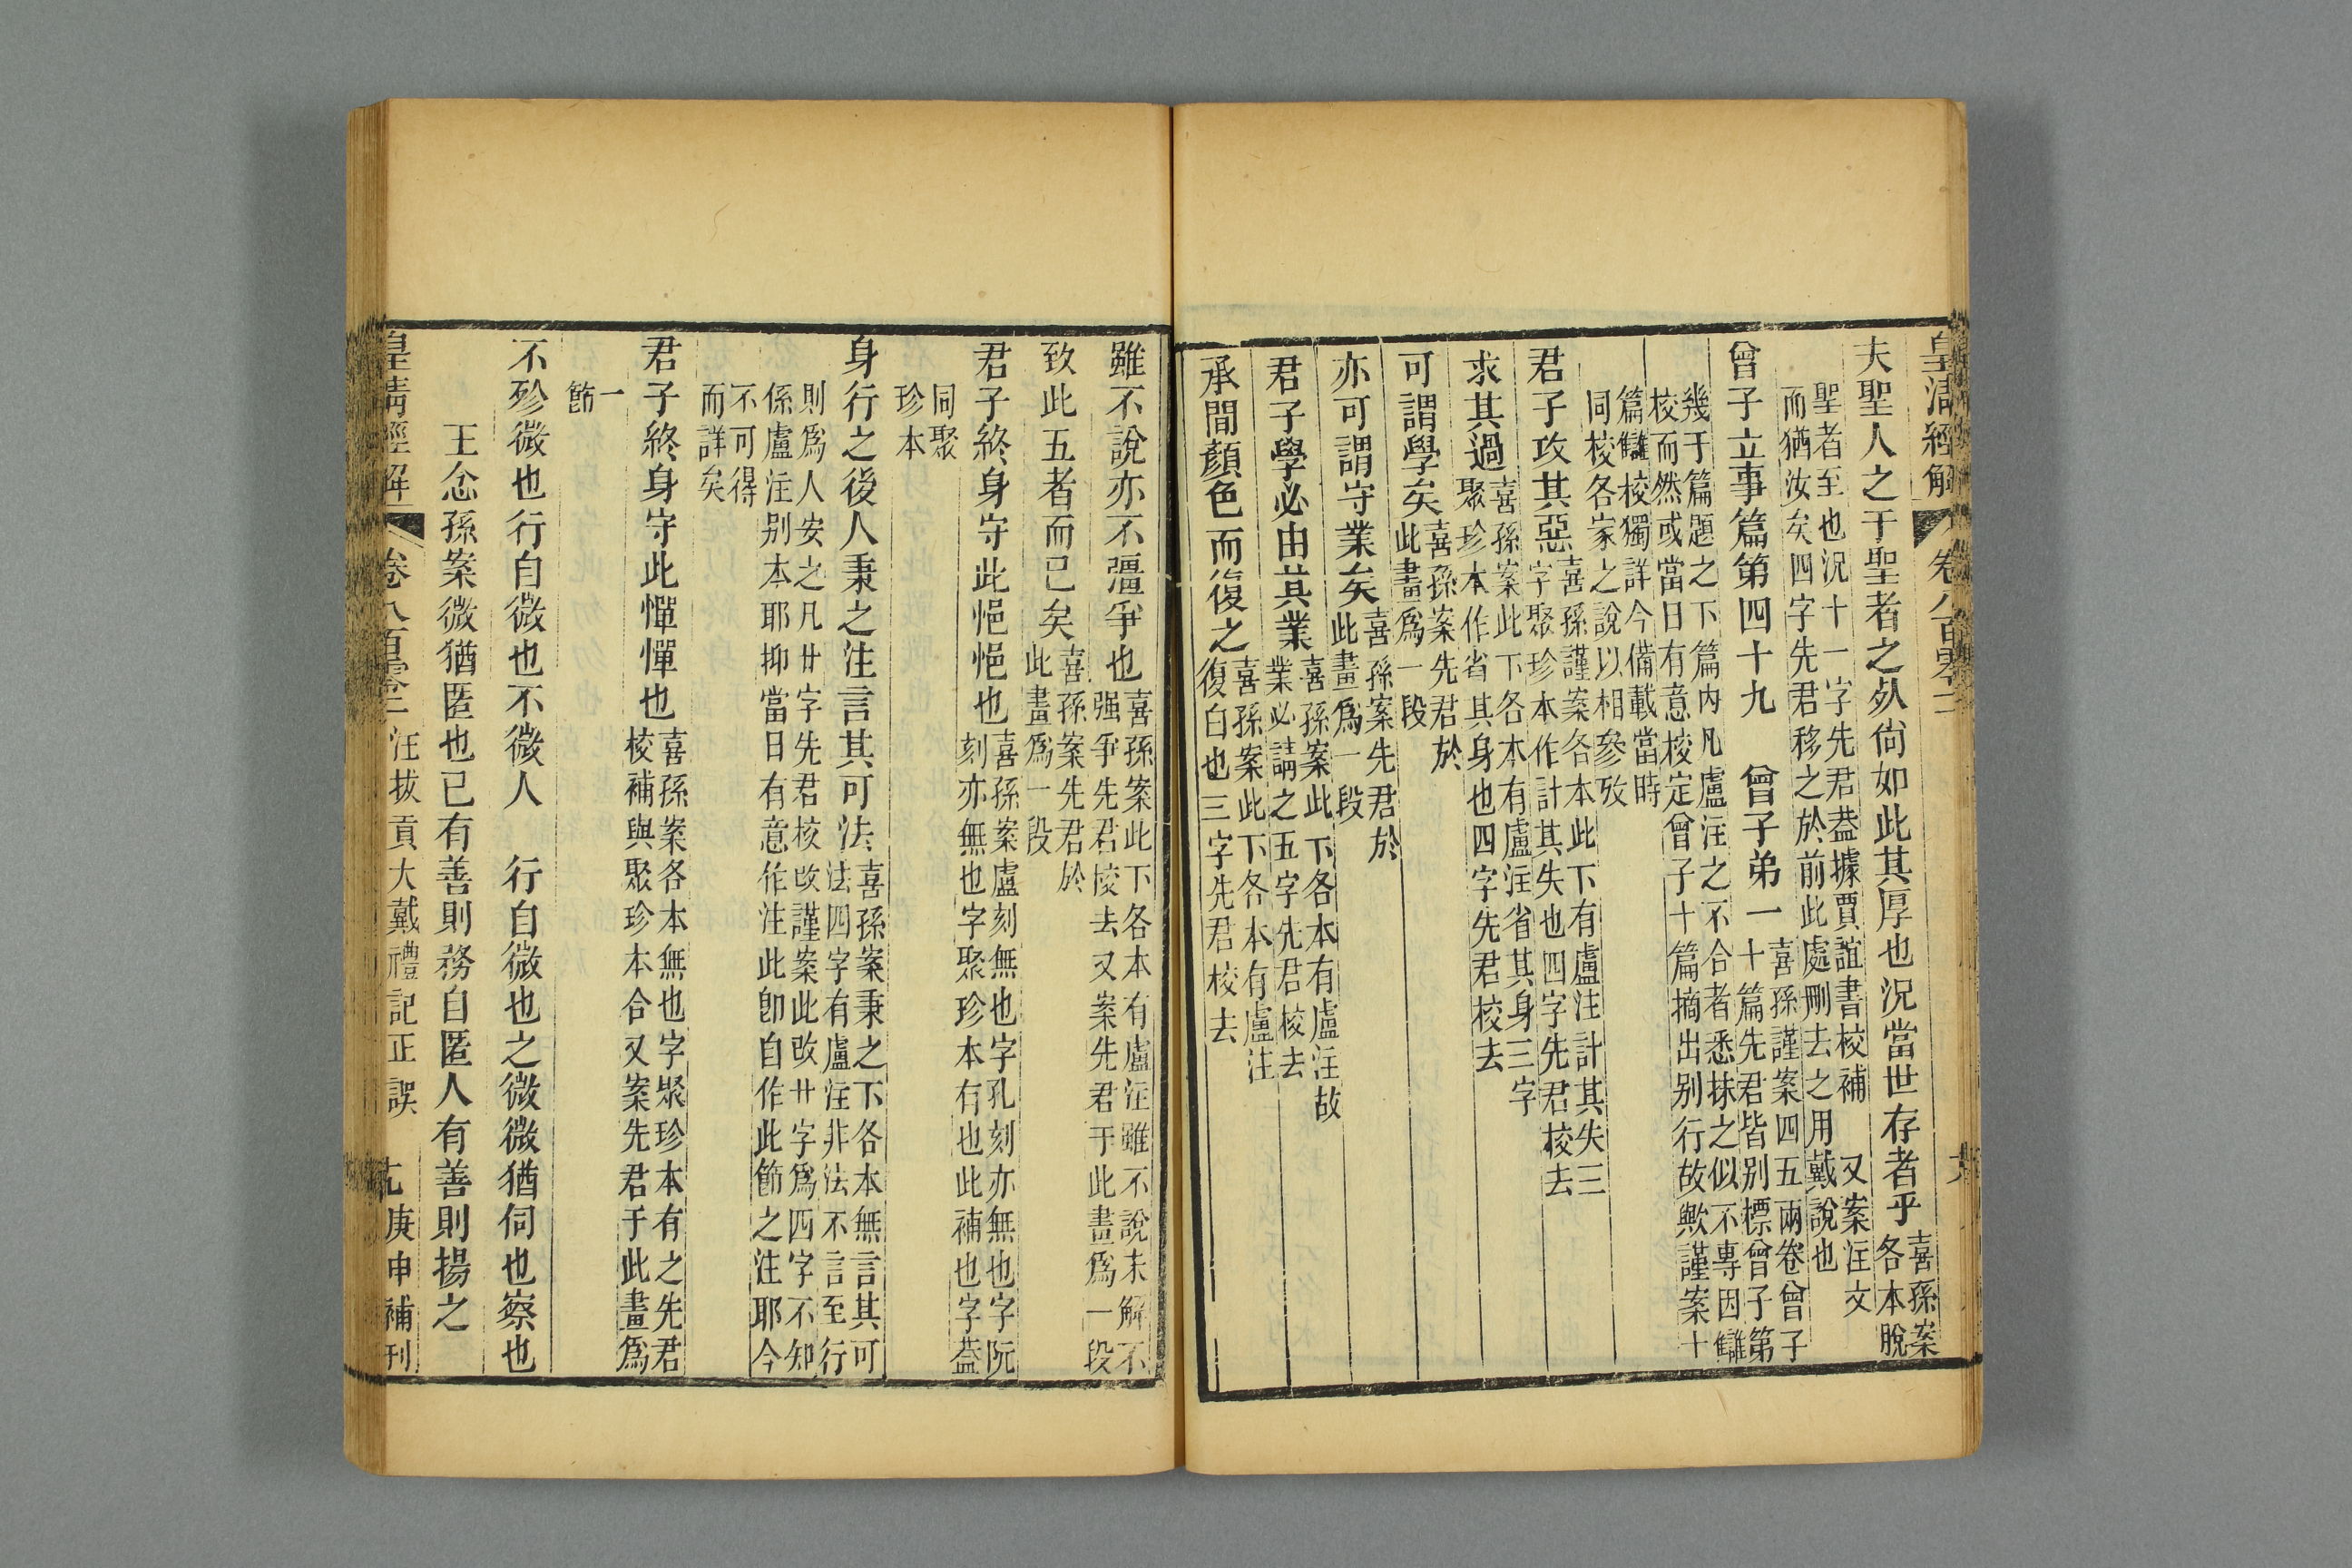 皇清經解 卷八百零二
夫聖人之于聖者之死尙如此其厚也況當世存者乎喜孫案各本脫
聖者至也況十一字先君葢據賈誼書校補 又案注文
而猶汝矣四字先君移之於前此處刪去之用戴說也
曾子立事篇第四十九 曾子弟一十喜孫謹案四五兩卷曾子
篇先君皆别標曾子第
幾于篇題之下篇內凡盧注之不合者悉抹之似不專因讎
校而然或當日有意校定曾子十篇摘出别行故歟謹案十
篇讎校獨詳今備載當時
同校各家之說以相參攷
君子攻其惡喜孫謹案各本此下有盧注計其失三
字聚珍本作計其失也四字先君校去
求其過喜孫案此下各本有盧注省其身三字
聚珍本作省其身也四字先君校去
可謂學矣喜孫案先君於
此畫爲一段
亦可謂守業矣喜孫案先君於
此畫爲一段
君子學必由其業喜孫案此下各本有盧注故
業必請之五字先君校去
承間顏色而復之喜孫案此下各本有盧注
復白也三字先君校去
雖不說亦不彊爭也喜孫案此下各本有盧注雖不說未解不
强爭先君校去又案先君于此畫爲一段
致此五者而已矣喜孫案先君於
此畫爲一段
君子終身守此悒悒也喜孫案盧刻無也字孔刻亦無也字阮
刻亦無也字聚珍本有也此補也字葢
同聚
珍本
身行之後人秉之注言其可法喜孫案秉之下各本無言其可
法四字有盧注非法不言至行
則爲人安之凡廿字先君校改謹案此改廿字爲四字不知
係盧注别本耶抑當日有意作注此卽自作此節之注耶今
不可得
而詳矣
君子終身守此憚憚也喜孫案各本無也字聚珍本有之先君
校補與聚珍本合又案先君于此畫爲
一
節
不殄微也行自微也不微人 行自微也之微微猶伺也察也
王念孫案微猶匿也已有善則務自匿人有善則揚之
皇清經解 卷八百零二 汪拔貢大戴禮記正誤 庚申補刊